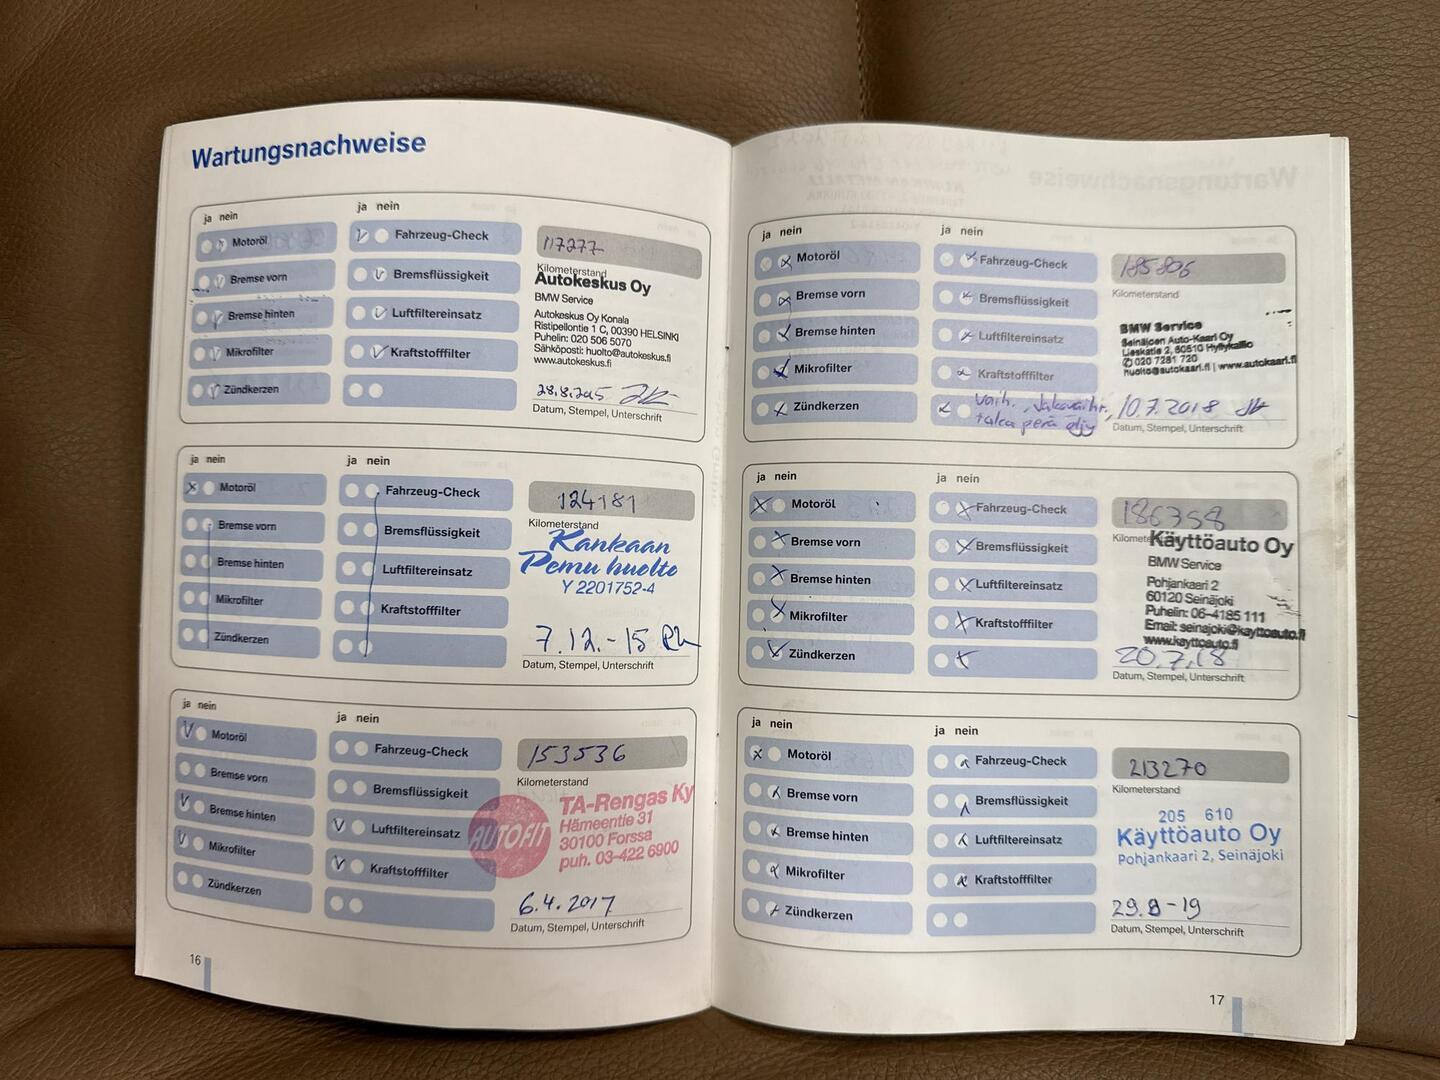 Wartungsnachweise
ja nein
ja nein
Motoröl
Fahrzeug-Check
117277
Bremse vorn
Bremsflüssigkeit
Kilometerstand
Autokeskus Oy
BMW Service
Bremse hinten
Luftfiltereinsatz
Autokeskus Oy Konala
Ristipellontie 1 C, 00390 HELSINKI
Puhelin: 020 506 5070
Mikrofilter
Kraftstofffilter
Sähköposti: huolto@autokeskus.fi
www.autokeskus.fi
Zündkerzen
28.8.2015
Datum, Stempel, Unterschrift
ja nein
ja nein
Motoröl
Fahrzeug-Check
124181
Bremse vorn
Bremsflüssigkeit
Kilometerstand
Kankaan
Bremse hinten
Luftfiltereinsatz
Pemu huolto
Y 2201752-4
Mikrofilter
Kraftstofffilter
Zündkerzen
7.12.-15
Datum, Stempel, Unterschrift
ja nein
ja nein
Motoröl
Fahrzeug-Check
153536
Bremse vorn
Bremsflüssigkeit
Kilometerstand
Bremse hinten
Luftfiltereinsatz
AUTOFIT
TA-Rengas Ky
Hämeentie 31
30100 Forssa
puh. 03-422 6900
Mikrofilter
Kraftstofffilter
Zündkerzen
6.4.2017
Datum, Stempel, Unterschrift
16
ja nein
ja nein
Motoröl
Fahrzeug-Check
185806
Bremse vorn
Bremsflüssigkeit
Kilometerstand
Bremse hinten
Luftfiltereinsatz
BMW Service
Seinäjoen Auto-Kaari Oy
Lieskatie 2, 60510 Hyllykallio
✆ 020 7281 720
huolto@autokaari.fi | www.autokaari.fi
Mikrofilter
Kraftstofffilter
Zündkerzen
vaih., Jakovaihr,
taka perä öljy
10.7.2018
Datum, Stempel, Unterschrift
ja nein
ja nein
Motoröl
Fahrzeug-Check
186358
Bremse vorn
Bremsflüssigkeit
Käyttöauto Oy
BMW Service
Bremse hinten
Luftfiltereinsatz
Pohjankaari 2
60120 Seinäjoki
Puhelin: 06-4185 111
Mikrofilter
Kraftstofffilter
Email: seinajoki@kayttoauto.fi
www.kayttoauto.fi
Zündkerzen
20.7.18
Datum, Stempel, Unterschrift
ja nein
ja nein
Motoröl
Fahrzeug-Check
213270
Kilometerstand
Bremse vorn
Bremsflüssigkeit
205 610
Bremse hinten
Luftfiltereinsatz
Käyttöauto Oy
Pohjankaari 2, Seinäjoki
Mikrofilter
Kraftstofffilter
Zündkerzen
29.8-19
Datum, Stempel, Unterschrift
17